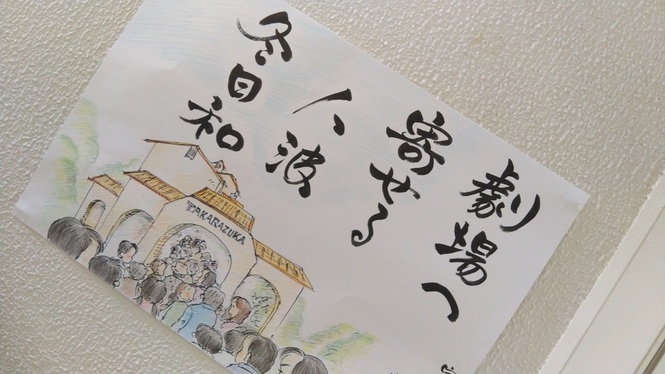 劇場へ
寄せる
人波
冬日和
TAKARAZUKA